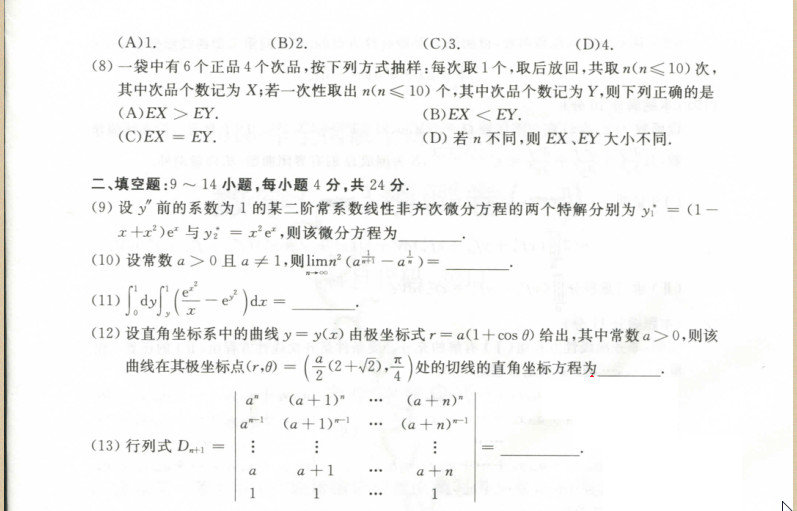 (A)1. (B)2. (C)3. (D)4.
(8) 一袋中有 6 个正品 4 个次品,按下列方式抽样:每次取 1 个,取后放回,共取 n(n⩽10) 次,
其中次品个数记为 X;若一次性取出 n(n⩽10) 个,其中次品个数记为 Y,则下列正确的是
(A)EX > EY. (B)EX < EY.
(C)EX = EY. (D) 若 n 不同,则 EX、EY 大小不同.
二、填空题:9 ~ 14 小题,每小题 4 分,共 24 分.
(9) 设 y″ 前的系数为 1 的某二阶常系数线性非齐次微分方程的两个特解分别为 y₁* = (1 −
x + x²)eˣ 与 y₂* = x²eˣ,则该微分方程为________.
(10) 设常数 a > 0 且 a ≠ 1,则 lim_{n→∞} n²(a^{1/(n+1)} − a^{1/n}) = ________.
(11) ∫₀¹ dy ∫_y^1 (e^{x²}/x − e^{y²}) dx = ________.
(12) 设直角坐标系中的曲线 y = y(x) 由极坐标式 r = a(1 + cos θ) 给出,其中常数 a > 0,则该
曲线在其极坐标点(r,θ) = (a/2(2+√2), π/4) 处的切线的直角坐标方程为________.
aⁿ (a+1)ⁿ ⋯ (a+n)ⁿ
aⁿ⁻¹ (a+1)ⁿ⁻¹ ⋯ (a+n)ⁿ⁻¹
(13) 行列式 Dₙ₊₁ = ⋮ ⋮ ⋮ = ________.
a a+1 ⋯ a+n
1 1 ⋯ 1